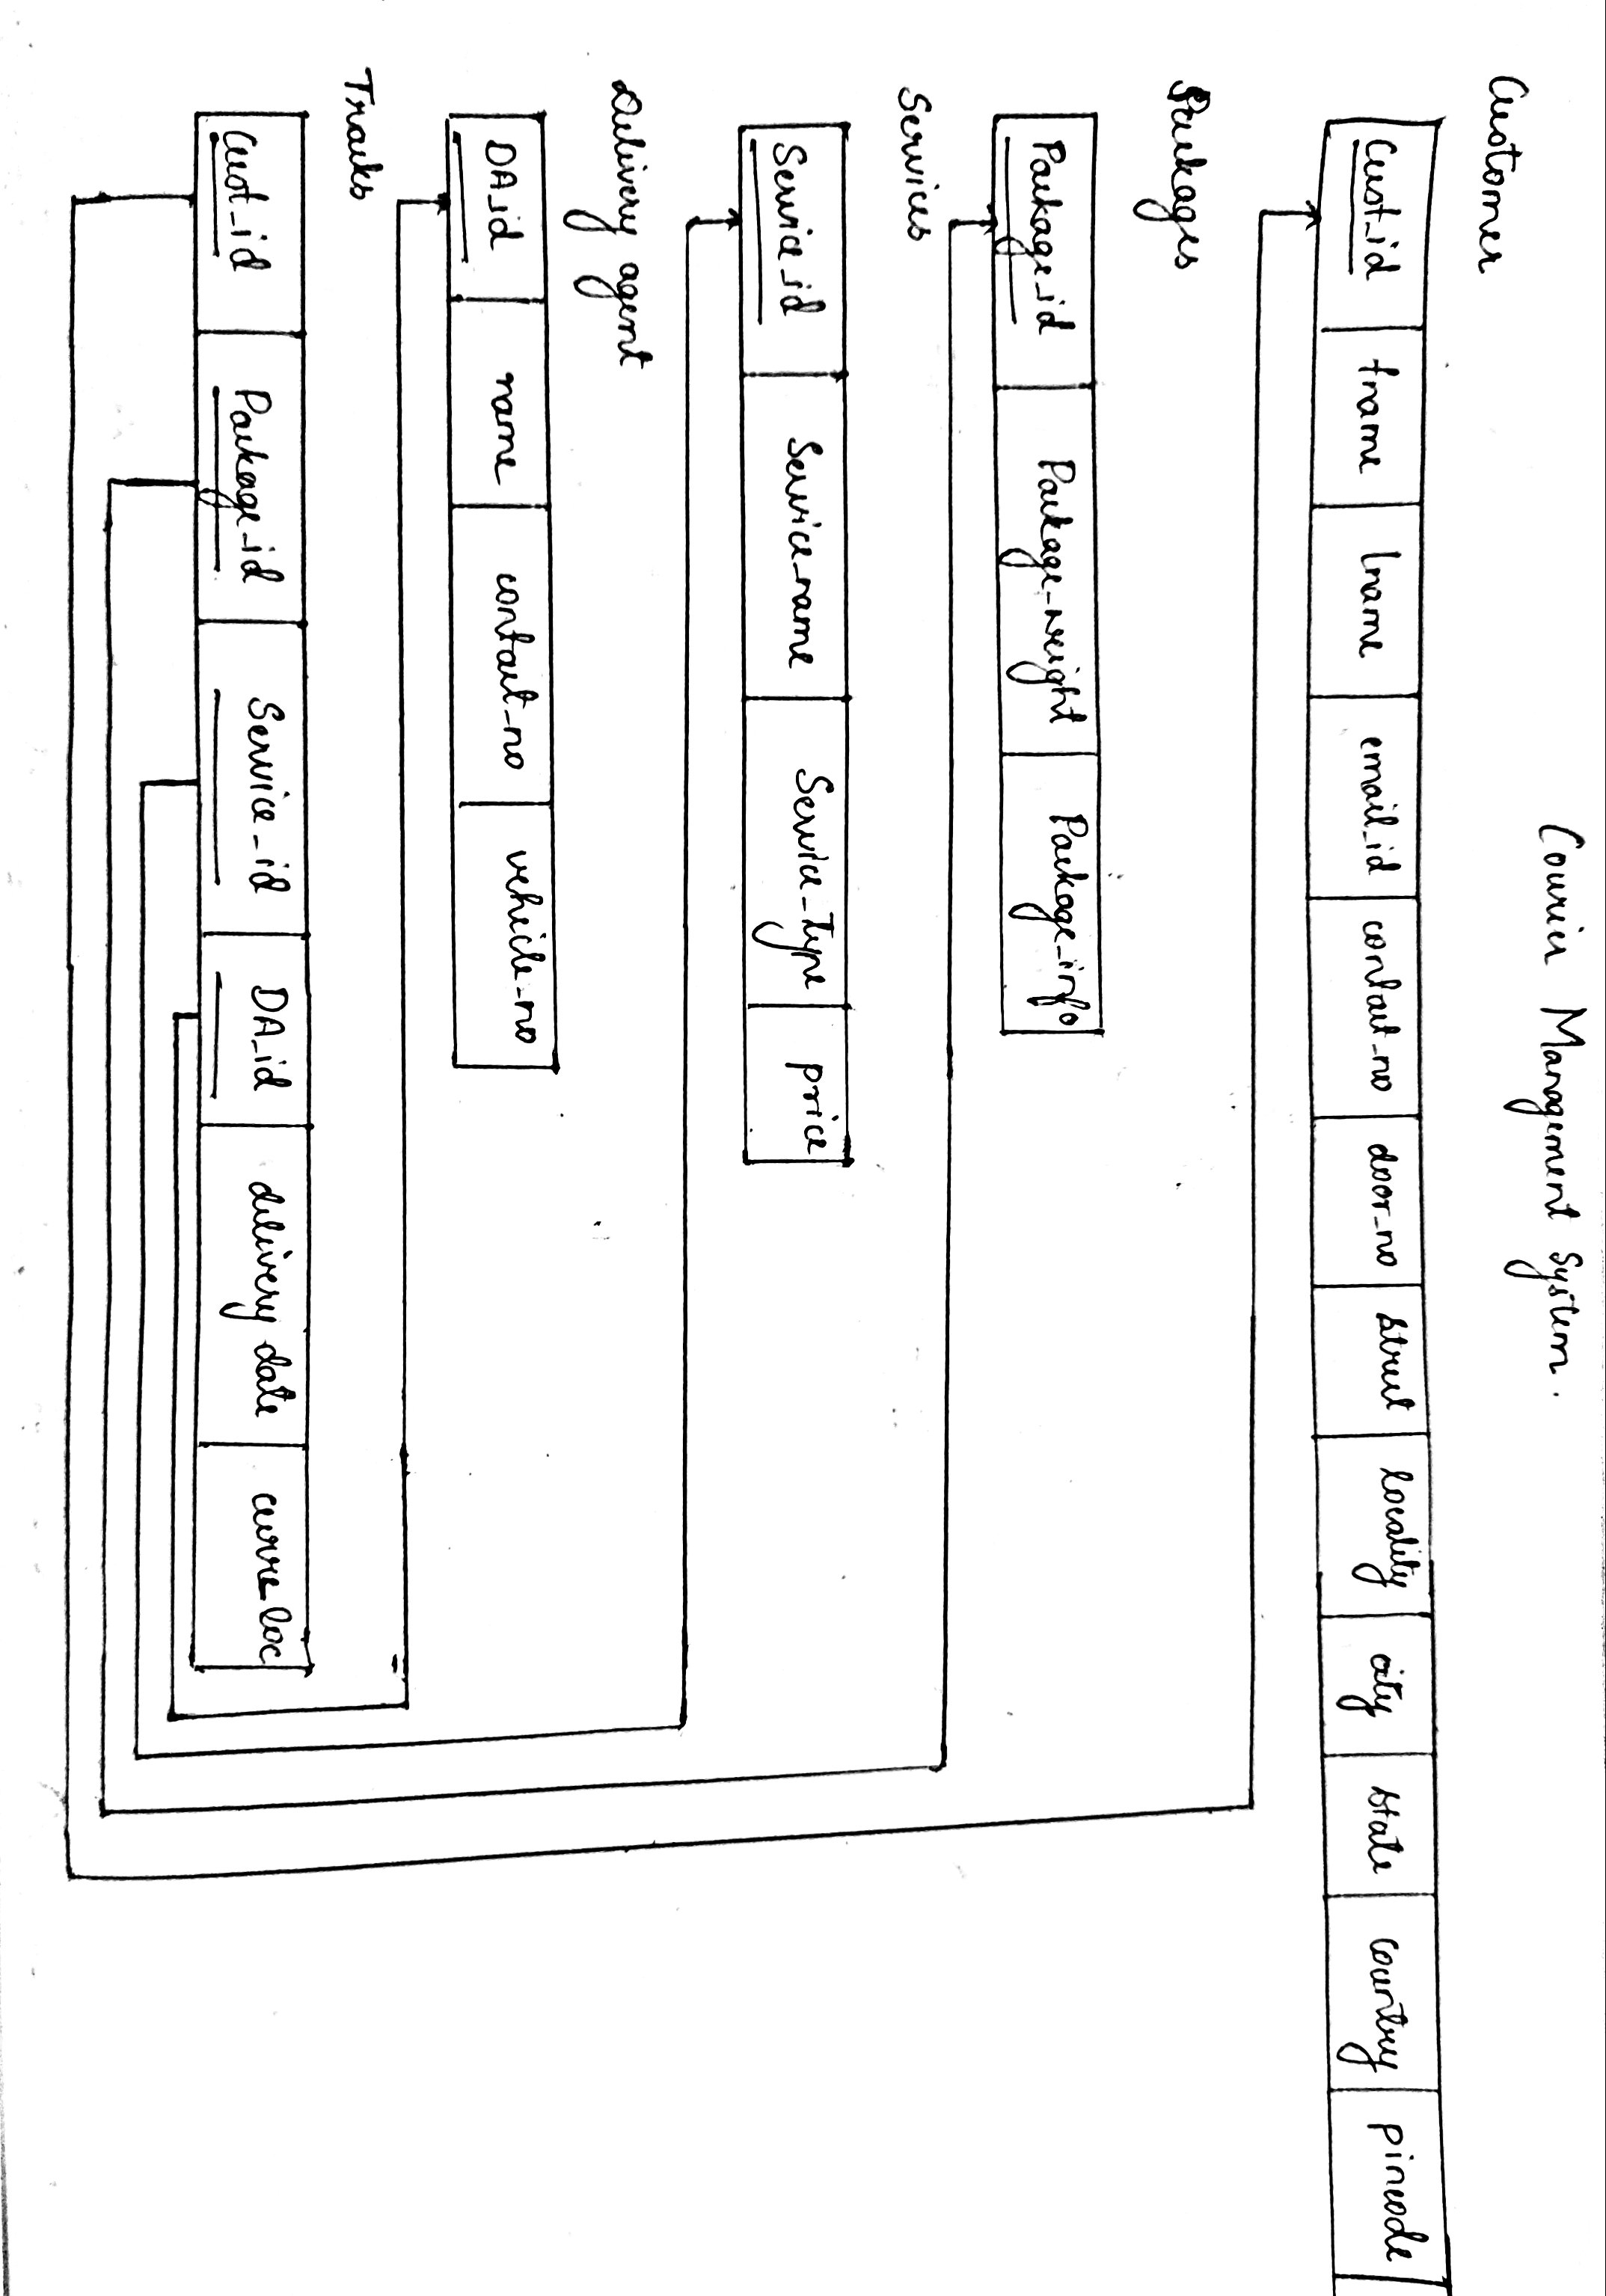 Courier Management System.
Customer
Cust_id fname lname email_id contact_no door_no street locality city state country pincode
Packages
Package_id Package_weight Package_info
Services
Service_id Service_name Service_Type price
Delivery agent
DA_id name contact_no vehicle_no
Tracks
Cust_id Package_id Service_id DA_id delivery date curre loc